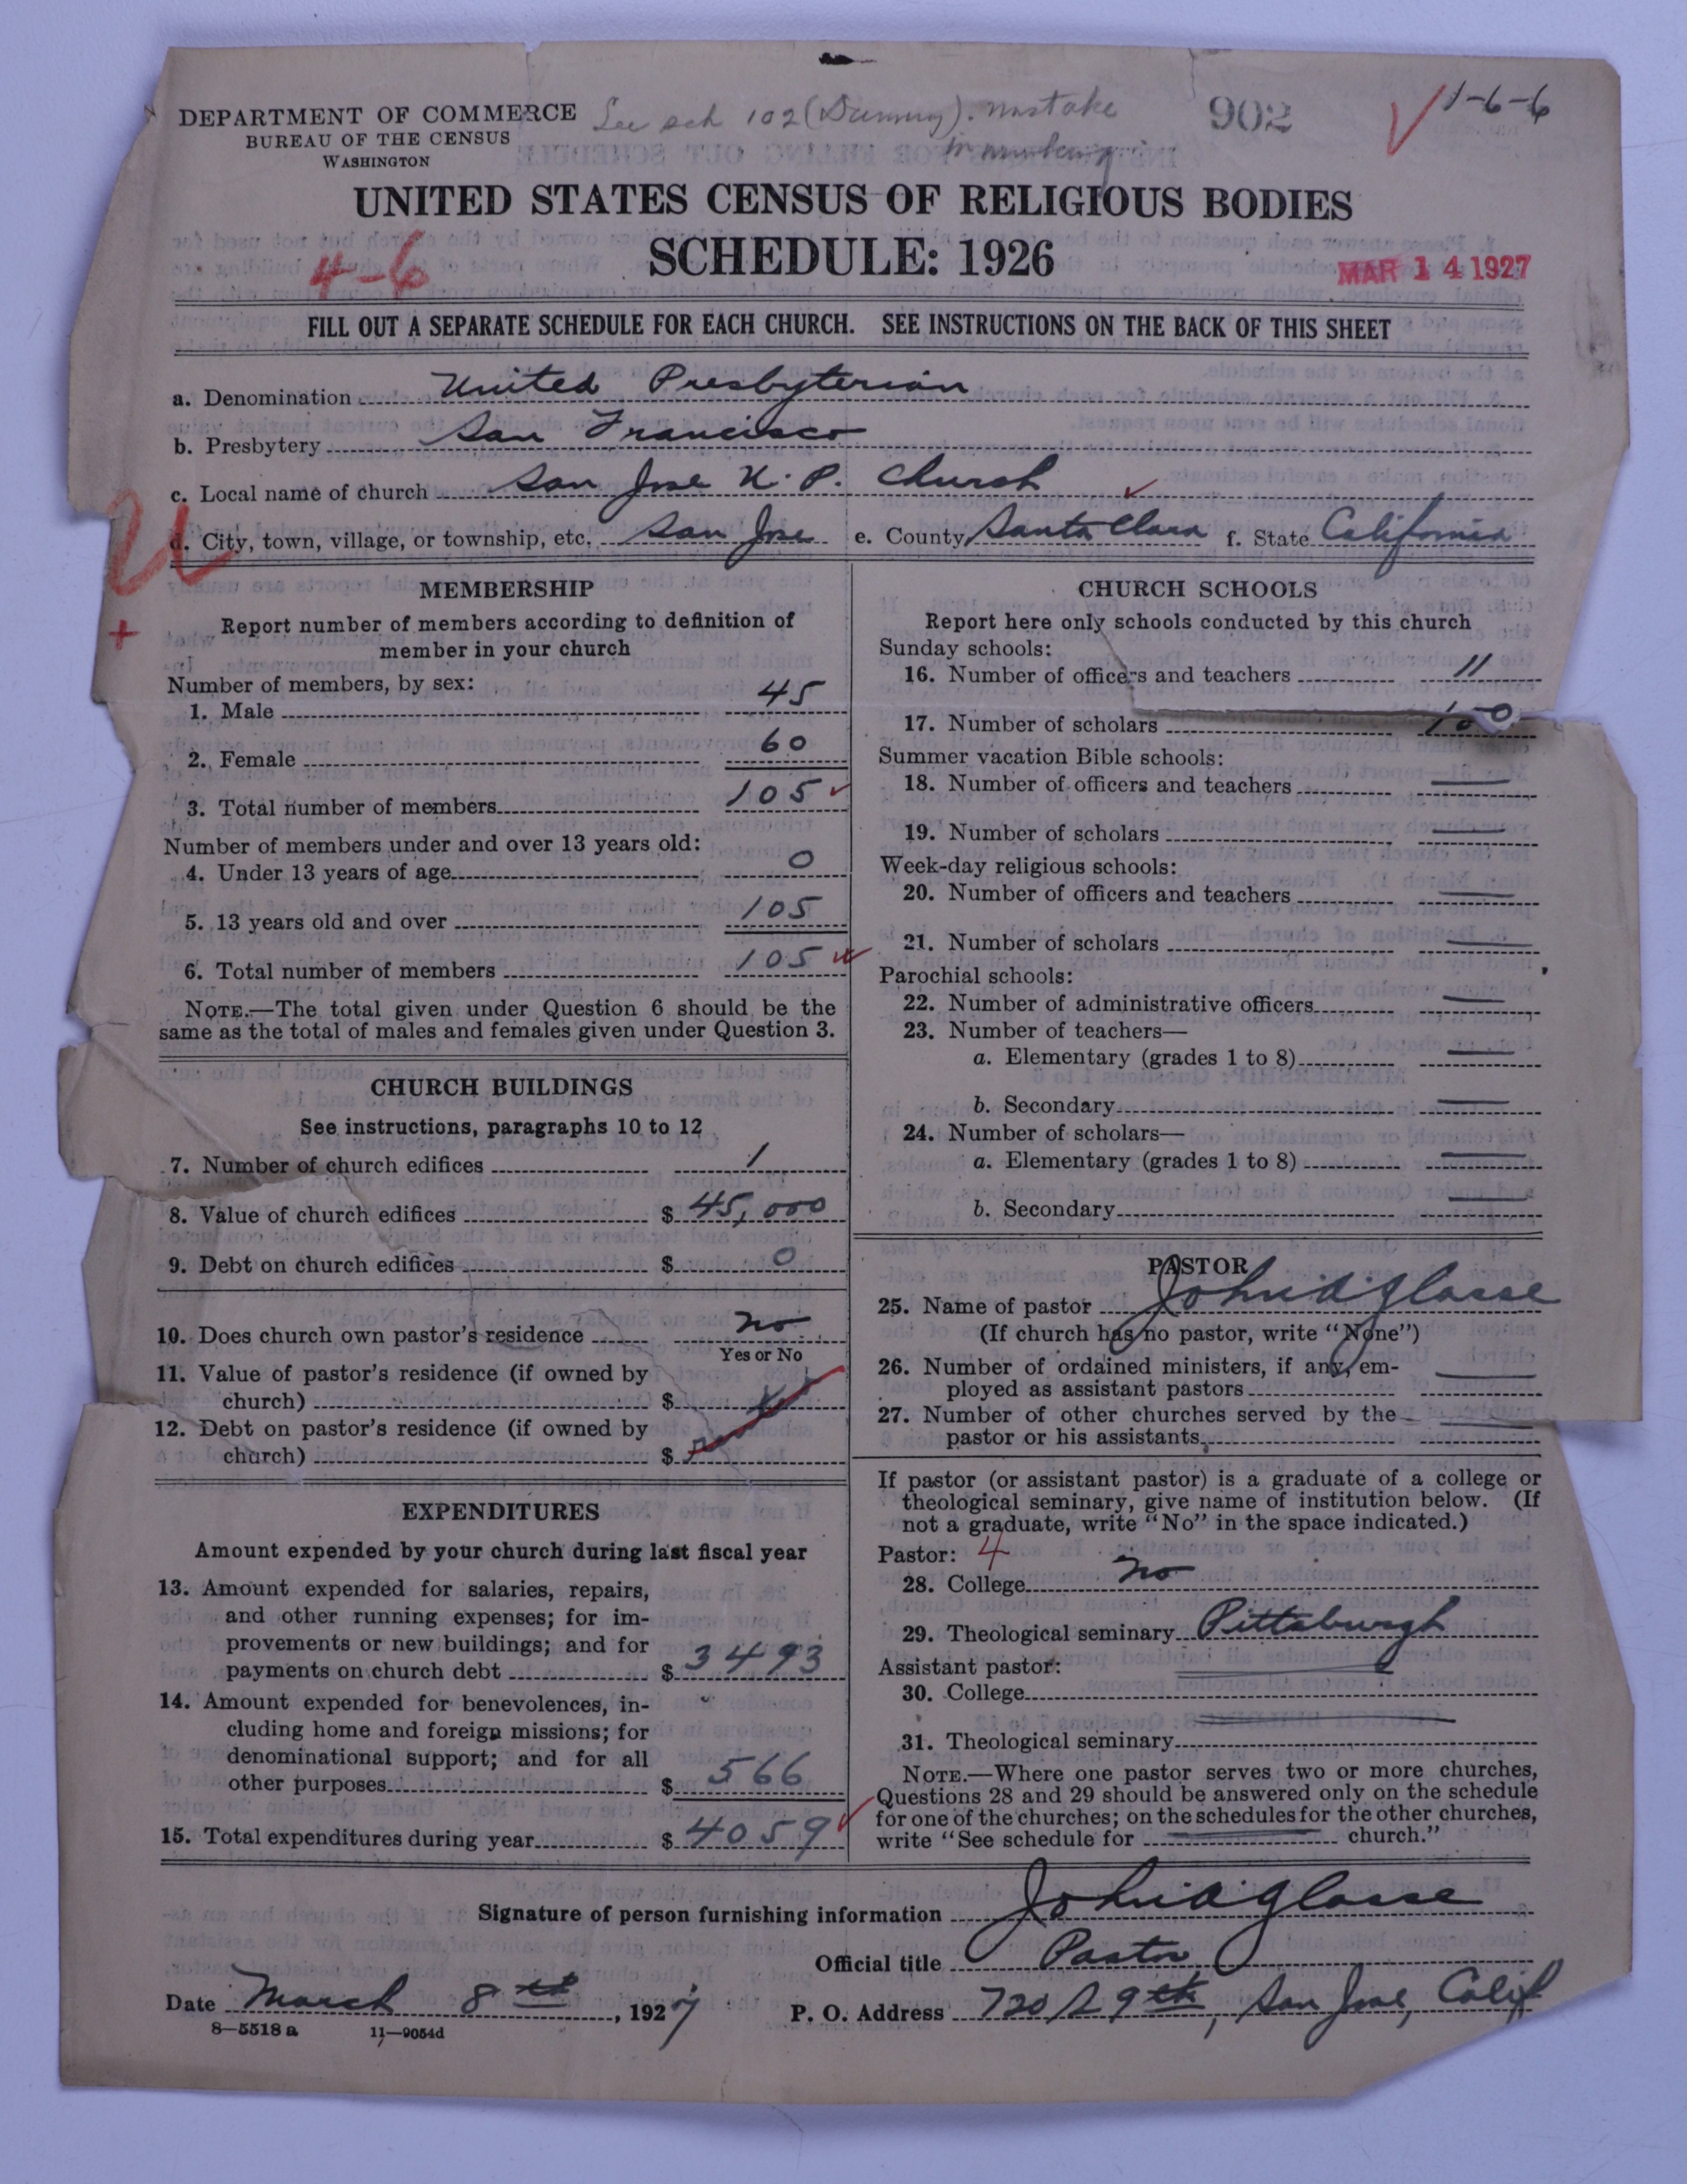 DEPARTMENT OF COMMERCE
BUREAU OF THE CENSUS
WASHINGTON
See sch 102 (Dummy). mistake
in numbering
902
1-6-6
UNITED STATES CENSUS OF RELIGIOUS BODIES
SCHEDULE: 1926
4-6
MAR 14 1927
FILL OUT A SEPARATE SCHEDULE FOR EACH CHURCH. SEE INSTRUCTIONS ON THE BACK OF THIS SHEET
a. Denomination United Presbyterian
b. Presbytery San Francisco
c. Local name of church San Jose U. P. Church
d. City, town, village, or township, etc. San Jose e. County Santa Clara f. State California
MEMBERSHIP
Report number of members according to definition of
member in your church
Number of members, by sex:
1. Male 45
2. Female 60
3. Total number of members 105
Number of members under and over 13 years old:
4. Under 13 years of age 0
5. 13 years old and over 105
6. Total number of members 105
NOTE.—The total given under Question 6 should be the
same as the total of males and females given under Question 3.
CHURCH BUILDINGS
See instructions, paragraphs 10 to 12
7. Number of church edifices 1
8. Value of church edifices $ 45,000
9. Debt on church edifices $ 0
10. Does church own pastor's residence no
Yes or No
11. Value of pastor's residence (if owned by
church) $
12. Debt on pastor's residence (if owned by
church) $
EXPENDITURES
Amount expended by your church during last fiscal year
13. Amount expended for salaries, repairs,
and other running expenses; for im-
provements or new buildings; and for
payments on church debt $ 3493
14. Amount expended for benevolences, in-
cluding home and foreign missions; for
denominational support; and for all
other purposes $ 566
15. Total expenditures during year $ 4059
CHURCH SCHOOLS
Report here only schools conducted by this church
Sunday schools:
16. Number of officers and teachers 11
17. Number of scholars 100
Summer vacation Bible schools:
18. Number of officers and teachers
19. Number of scholars
Week-day religious schools:
20. Number of officers and teachers
21. Number of scholars
Parochial schools:
22. Number of administrative officers
23. Number of teachers—
a. Elementary (grades 1 to 8)
b. Secondary
24. Number of scholars—
a. Elementary (grades 1 to 8)
b. Secondary
PASTOR
25. Name of pastor John A Glasse
(If church has no pastor, write "None")
26. Number of ordained ministers, if any, em-
ployed as assistant pastors
27. Number of other churches served by the
pastor or his assistants
If pastor (or assistant pastor) is a graduate of a college or
theological seminary, give name of institution below. (If
not a graduate, write "No" in the space indicated.)
Pastor: 4
28. College no
29. Theological seminary Pittsburgh
Assistant pastor:
30. College
31. Theological seminary
NOTE.—Where one pastor serves two or more churches,
Questions 28 and 29 should be answered only on the schedule
for one of the churches; on the schedules for the other churches,
write "See schedule for church."
Signature of person furnishing information John A Glasse
Official title Pastor
Date March 8th, 1927 P. O. Address 720 S 9th, San Jose, Calif
8—5518 a 11—9054d